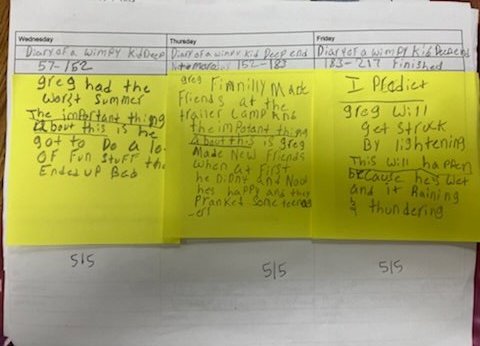 Wednesday
Diary of a wimpy kid Deep
57-152
greg had the
worst summer
The important thing
about this is he
got to Do a lo
OF Fun Stuff the
Ended up Bad
5/5
Thursday
Diary of a wimpy kid Deep end
152-183
greg Finnilly Made
Friends at the
trailer camp and
the impotant thing
about this is greg
Made New Friends
when at First
he Didnt and Now
hes happy and they
Pranked some teenag
-ers
5/5
Friday
Diary of a wimpy kid Deep end
183-217 Finished
I Predict
greg Will
get struck
By lightening
This will happen
because hes wet
and it Raining
thundering
5/5